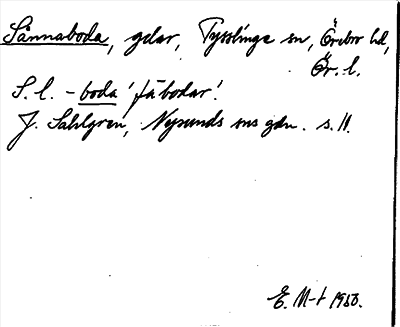 Sånnaboda, gdar, Tysslinge sn, Örebro hd,
Ör. l.
S. l. - boda 'fäbodar'.
J. Sahlgren, Nysunds sns gdn. s. 11.
E. M-t 1953.